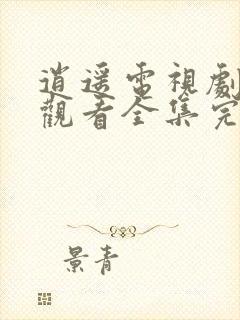 逍遥電視劇
觀看全集完
景青